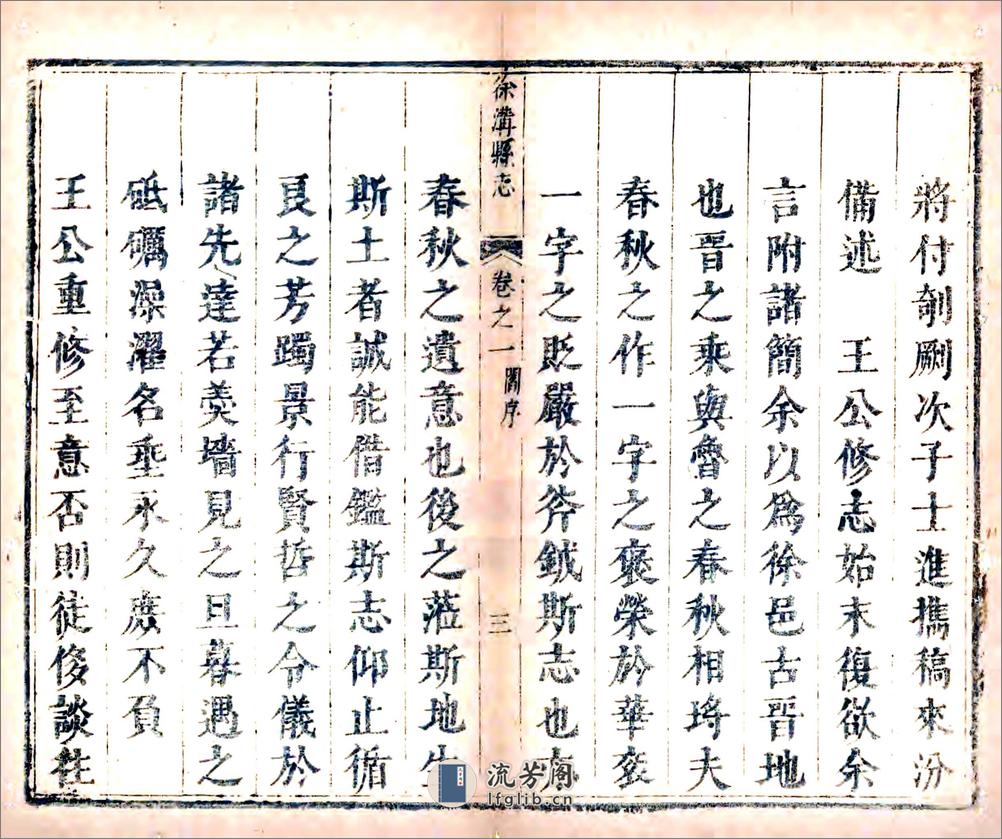 將付剞劂次子士進攜稿來汾
備述　王公修志始末復欲余
言附諸簡余以爲徐邑古晉地
也晉之乘與魯之春秋相埒夫
春秋之作一字之褒榮於華袞
一字之貶嚴於斧鉞斯志也亦
徐溝縣志
卷之一 閻序
三
春秋之遺意也後之蒞斯地生
斯土者誠能借鑑斯志仰止循
良之芳躅景行賢哲之令儀於
諸先達若羹墻見之旦暮遇之
砥礪澡濯名垂永久庶不負
王公重修至意否則徒侈談往
流芳阁
lfglib.cn